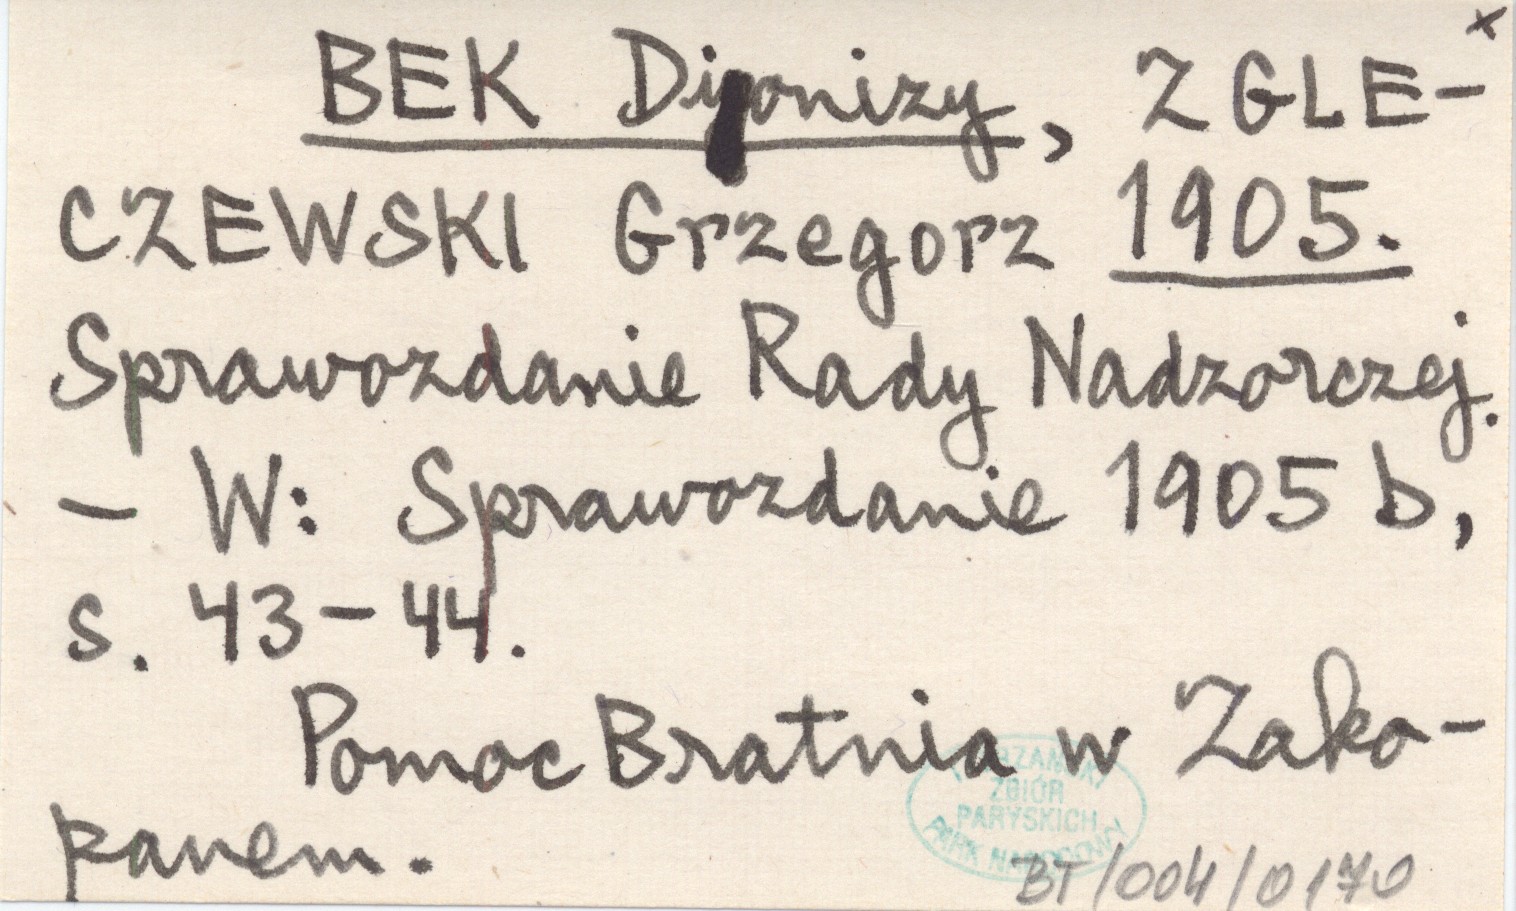 x
BEK Dionizy, ZGLE-
CZEWSKI Grzegorz 1905.
Sprawozdanie Rady Nadzorczej.
– W: Sprawozdanie 1905 b,
s. 43–44.
Pomoc Bratnia w Zako-
panem.
TATRZAŃSKI
ZBIÓR
PARYSKICH
PARK NARODOWY
BT/004/0170